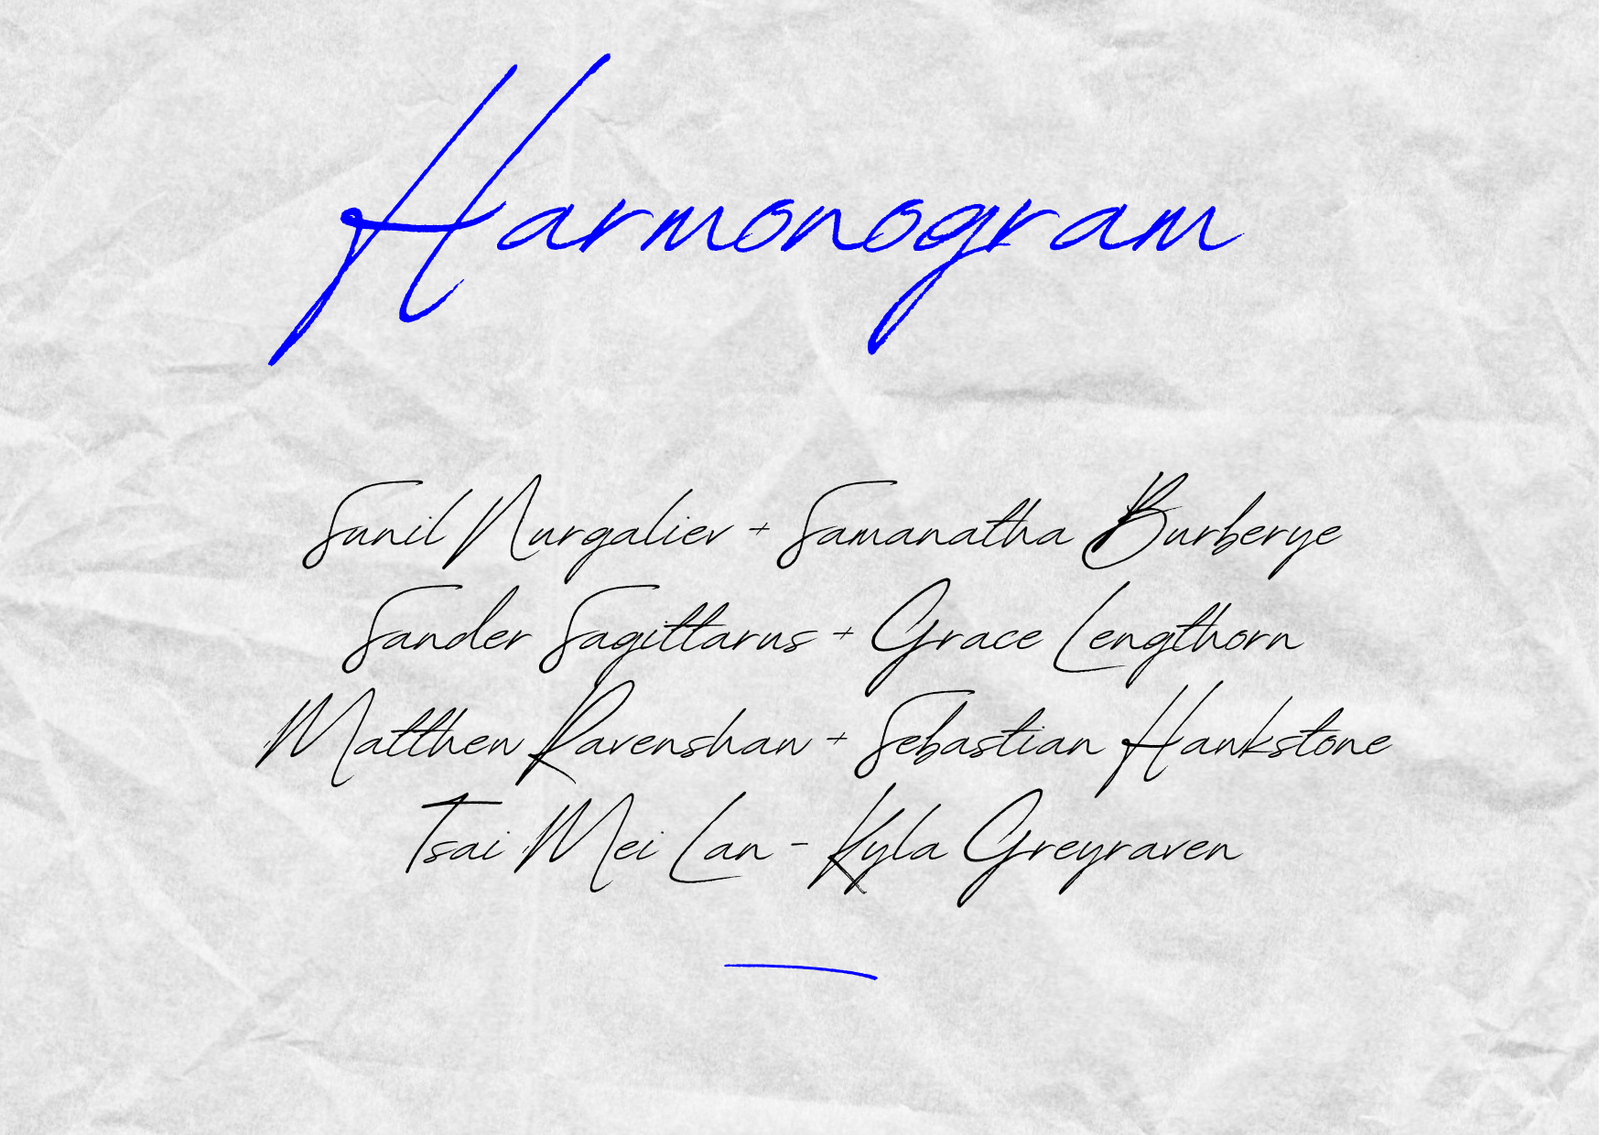 Harmonogram
Sunil Nurgaliev + Samanatha Burberye
Sander Sagittarus + Grace Lengthorn
Matthew Ravenshaw + Sebastian Hankstone
Tsai Mei Lan - Kyla Greyraven